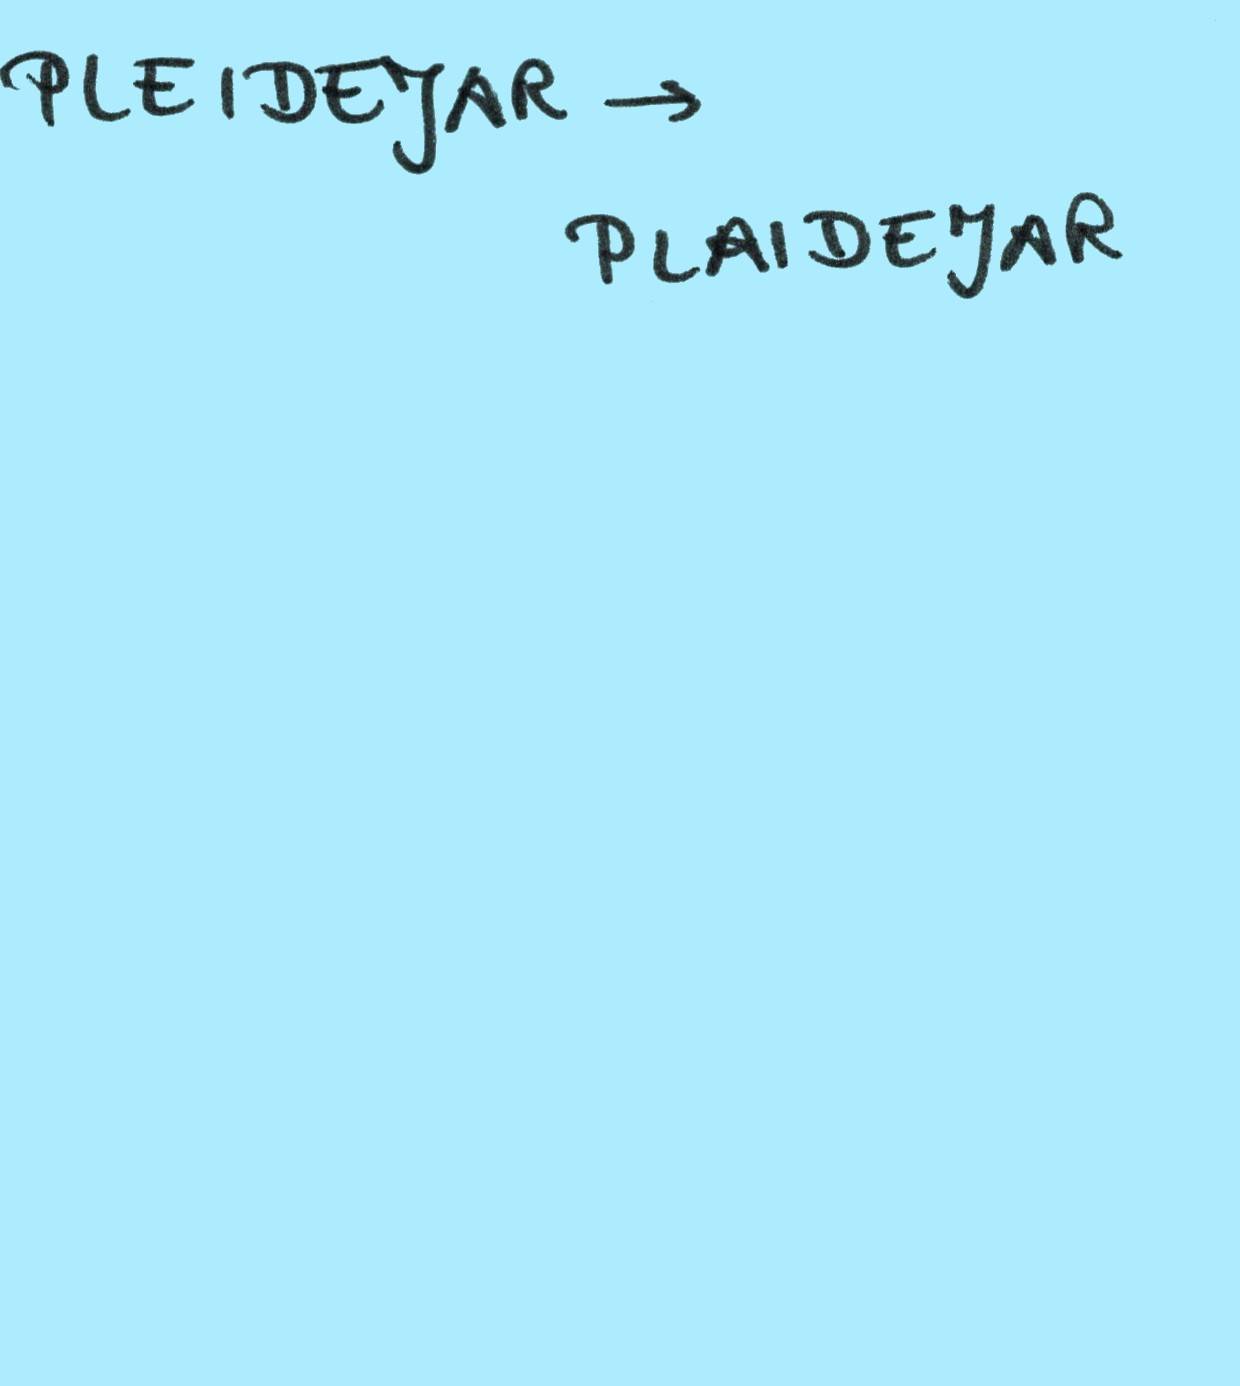 PLEIDEJAR →
PLAIDEJAR